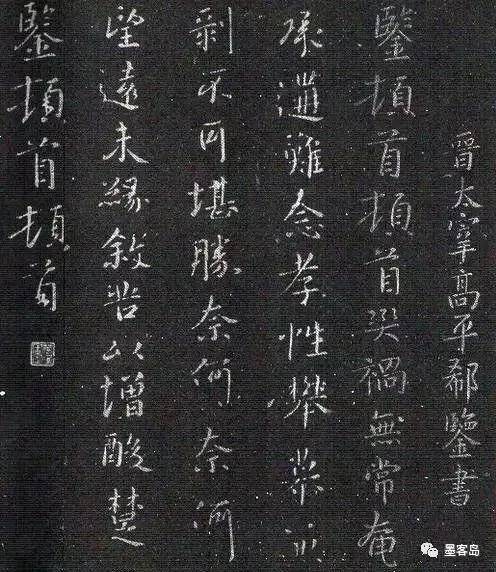 晋太宰高平郗鑒書
鑒頓首頓首災禍無常奄
承遘難念孝性攀慕兼
剝不可堪勝奈何奈何
望遠未緣敘苦以增酸楚
鑒頓首頓首
墨客岛